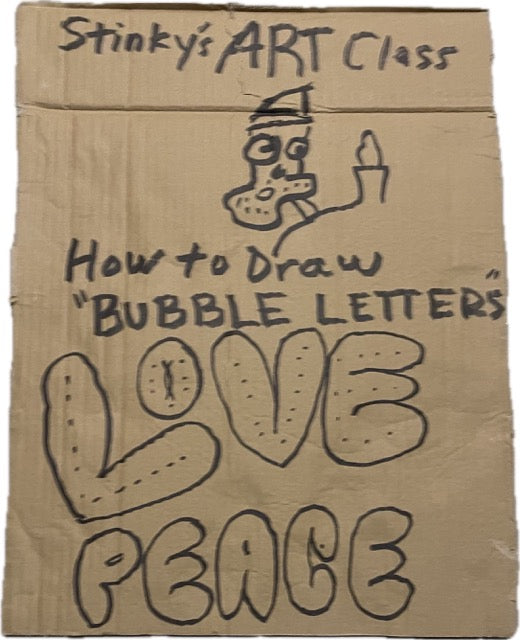 Stinky's ART Class
How to Draw
"BUBBLE LETTERS"
LOVE
PEACE